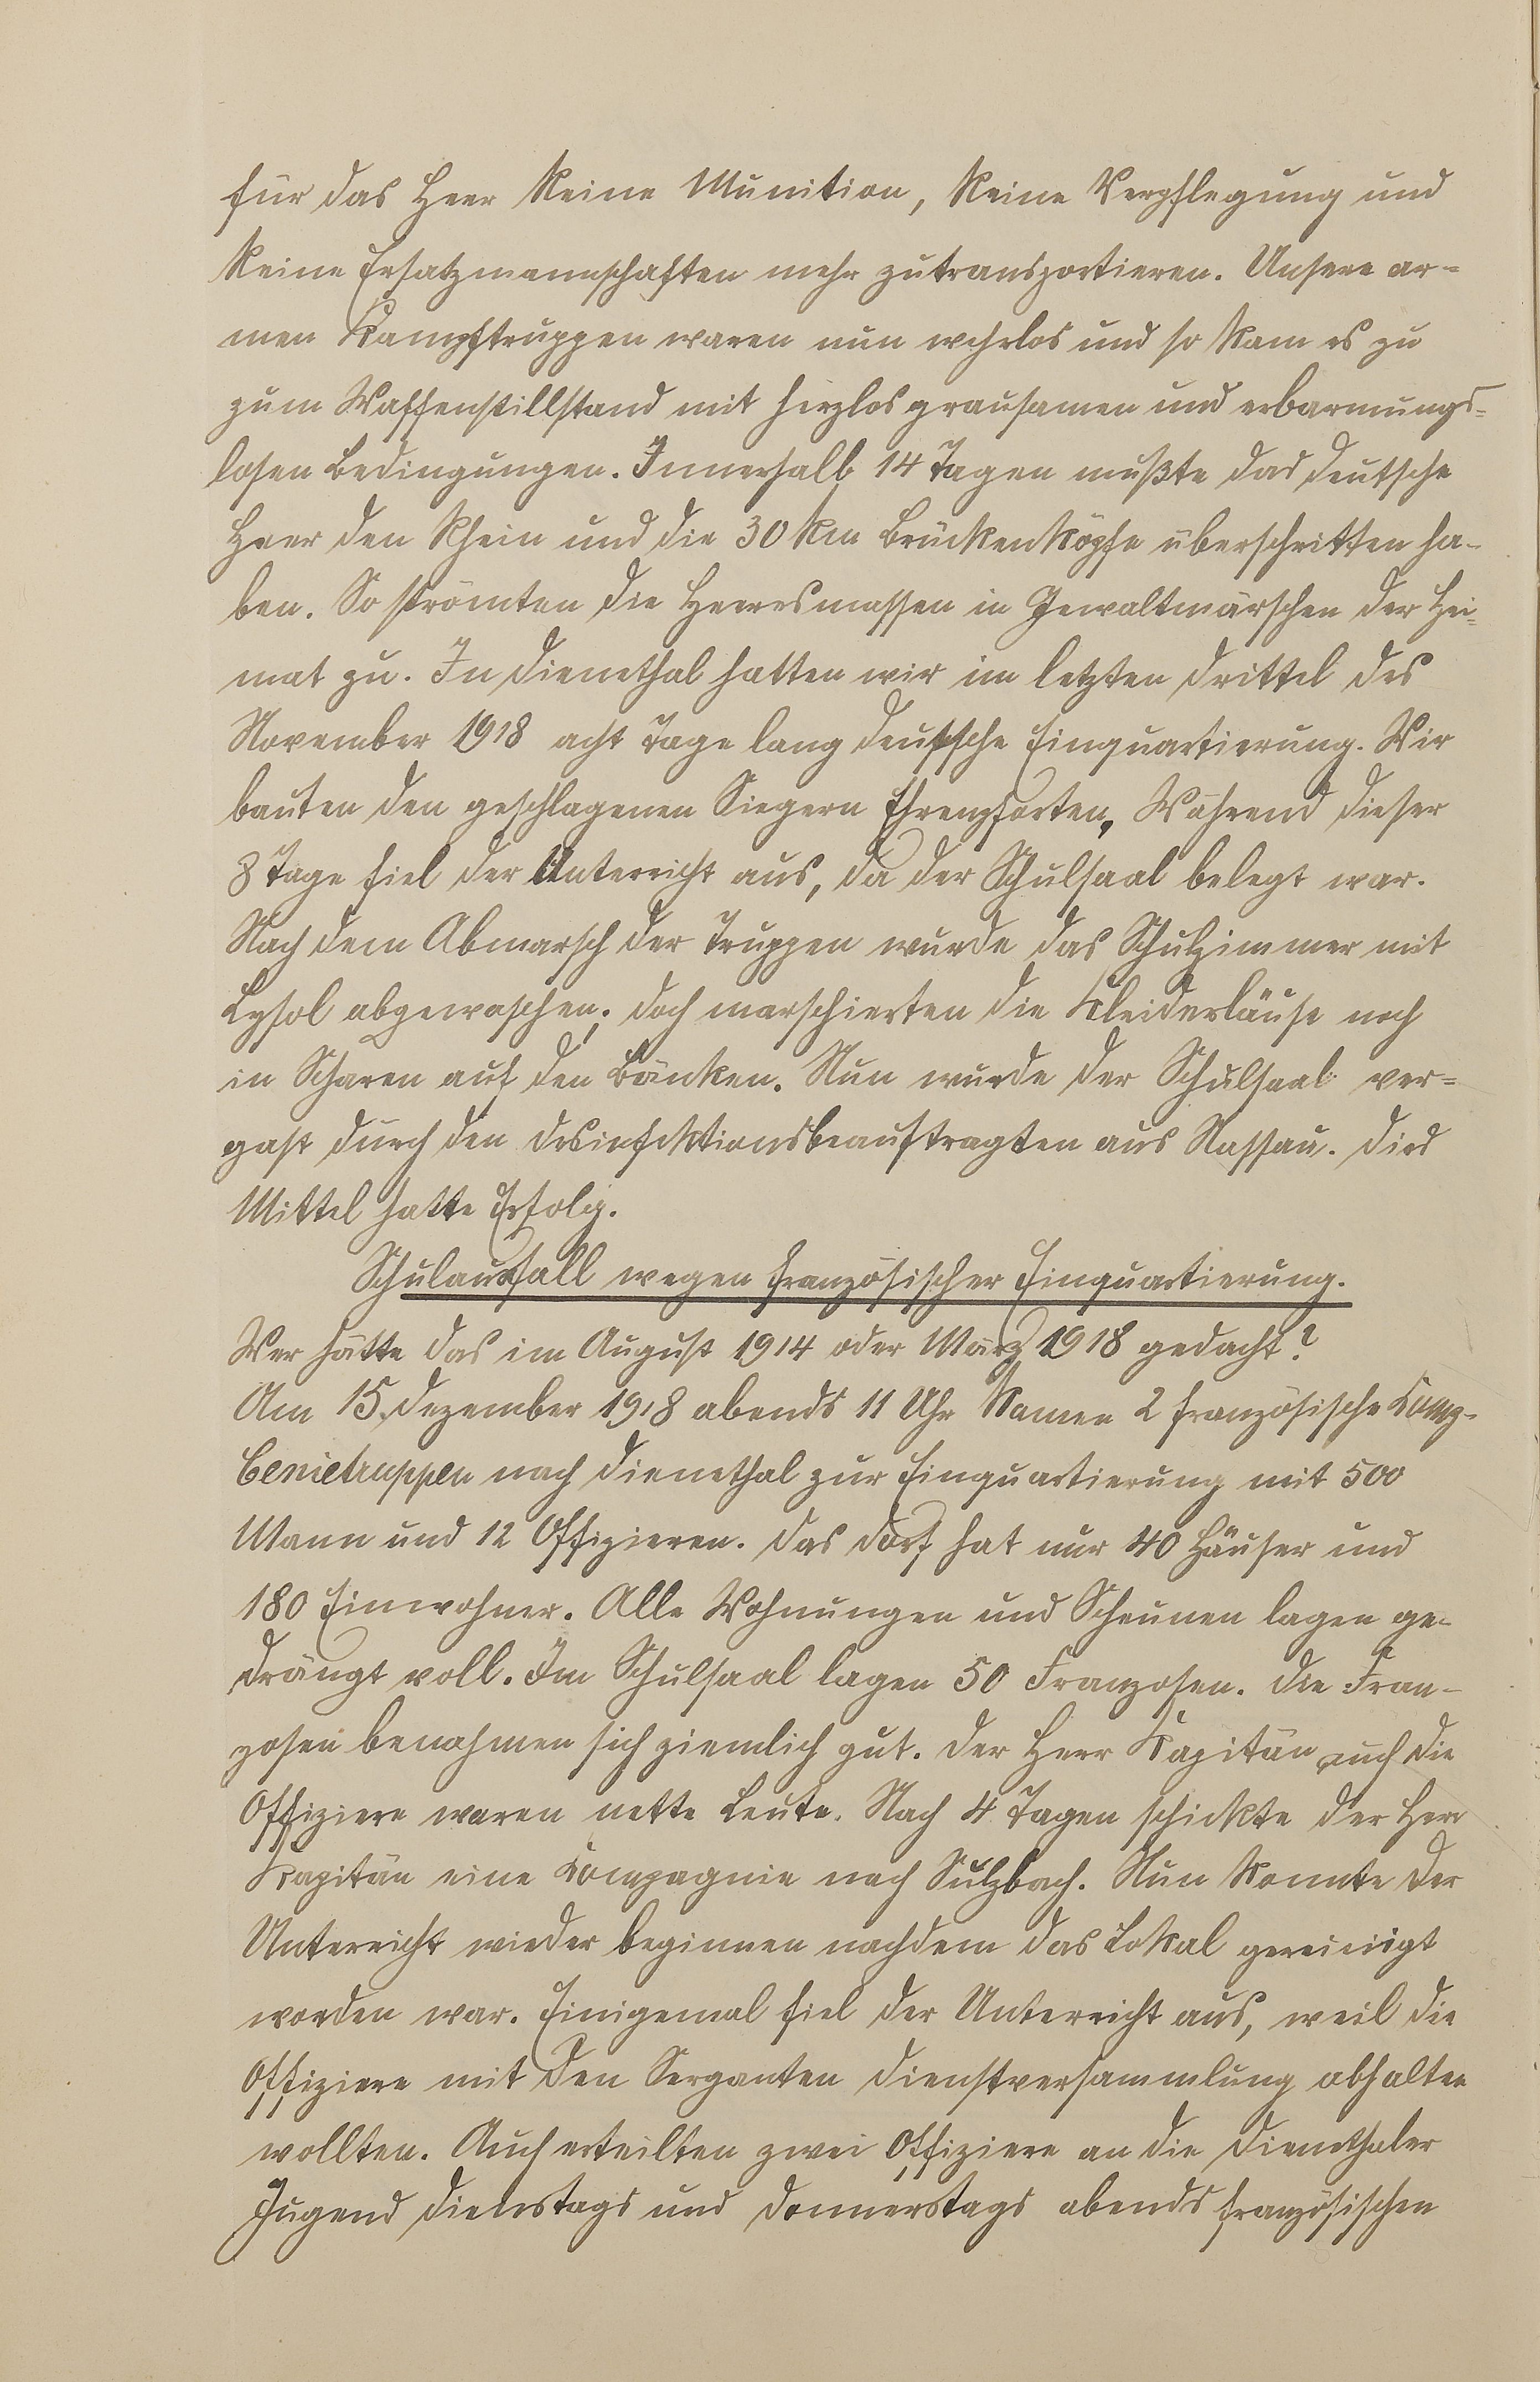 für das Heer keine Munition, keine Verpflegung und
keine Ersatzmannschaften mehr zutransportieren. Unsere ar-
men Kampftruppen waren nun wehrlos und so kam es zu
zum Waffenstillstand mit herzlos grausamen und erbarmungs-
losen Bedingungen. Innerhalb 14 Tagen mußte das deutsche
Heer den Rhein und die 30 km Brückenköpfe überschritten ha-
ben. So strömten die Heeresmassen in Gewaltmärschen der Hei-
mat zu. In Dienethal hatten wir im letzten Drittel des
November 1918 acht Tage lang deutsche Einquartierung. Wir
bauten den geschlagenen Siegern Ehrenpforten. Während dieser
8 Tage fiel der Unterricht aus, da der Schulsaal belegt war.
Nach dem Abmarsch der Truppen wurde das Schulzimmer mit
Lysol abgewaschen; doch marschierten die Kleiderläuse noch
in Scharen auf den Bänken. Nun wurde der Schulsaal ver-
gast durch den Desinfektionsbeauftragten aus Nassau. Dies
Mittel hatte Erfolg.
Schulausfall wegen französischer Einquartierung.
Wer hätte das im August 1914 oder März 1918 gedacht?
Am 15. Dezember 1918 abends 11 Uhr kamen 2 französische Komp-
Genietruppen nach Dienethal zur Einquartierung mit 500
Mann und 12 Offizieren. Das Dorf hat nur 40 Häuser und
180 Einwohner. Alle Wohnungen und Scheunen lagen ge-
drängt voll. Im Schulsaal lagen 50 Franzosen. Die Fran-
zosen benahmen sich ziemlich gut. Der Herr Kapitän auch die
Offiziere waren nette Leute. Nach 4 Tagen schickte der Herr
Kapitän eine Kompagnie nach Sulzbach. Nun konnte der
Unterricht wieder beginnen nachdem das Lokal gereinigt
worden war. Einigemal fiel der Unterricht aus, weil die
Offiziere mit den Serganten Dienstversammlung abhalten
wollten. Auch erteilten zwei Offiziere an die Dienethaler
Jugend Dienstags und Donnerstags abends französischen